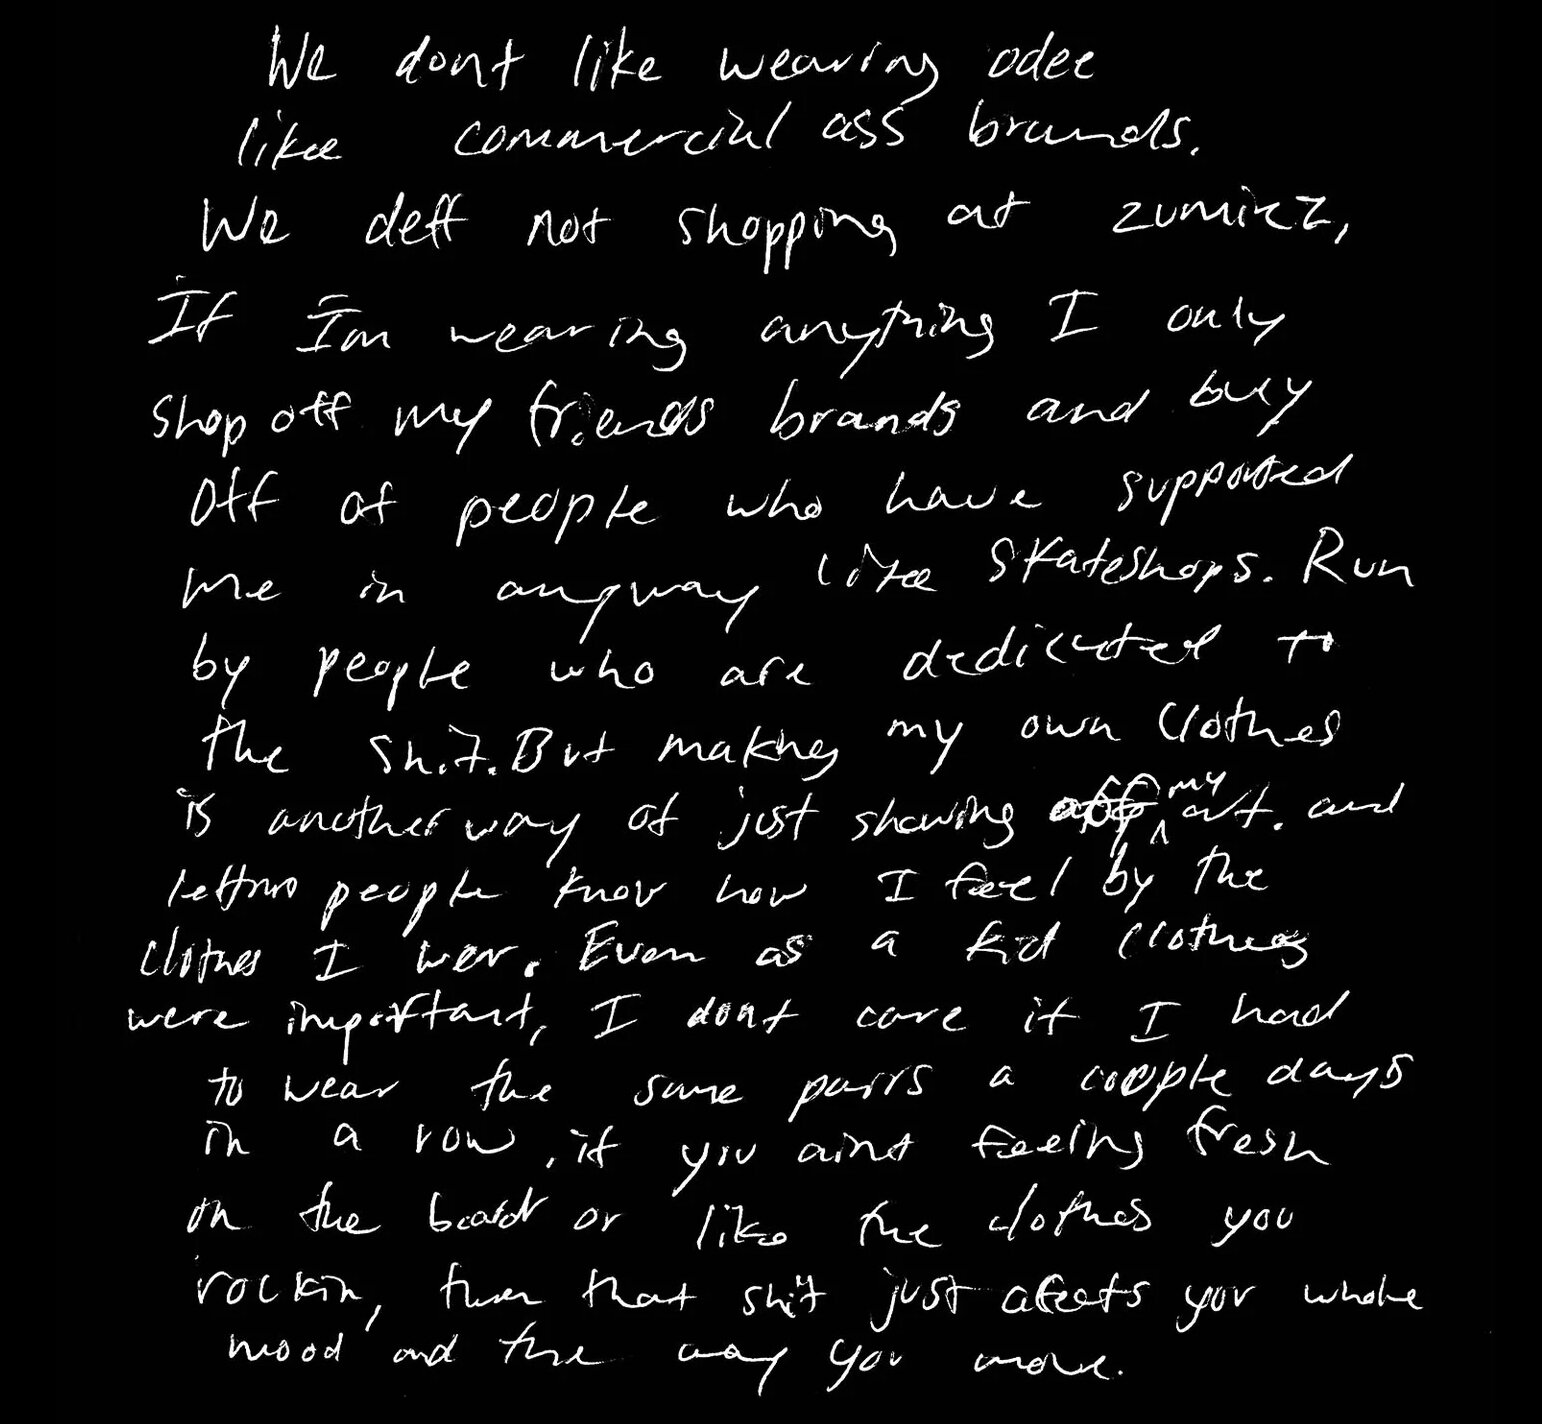 We dont like wearing odee
like commercial ass brands.
We deff not shopping at zumiez,
If Im wearing anything I only
shop off my friends brands and buy
off of people who have supported
me in anyway like skateshops. Run
by people who are dedicated to
the shit. But making my own clothes
is another way of just showing off my art. and
letting people know how I feel by the
clothes I wear. Even as a kid clothes
were important, I dont care if I had
to wear the same pairs a couple days
in a row, if you aint feeling fresh
on the board or like the clothes you
rockin, then that shit just afects your whole
mood and the way you move.